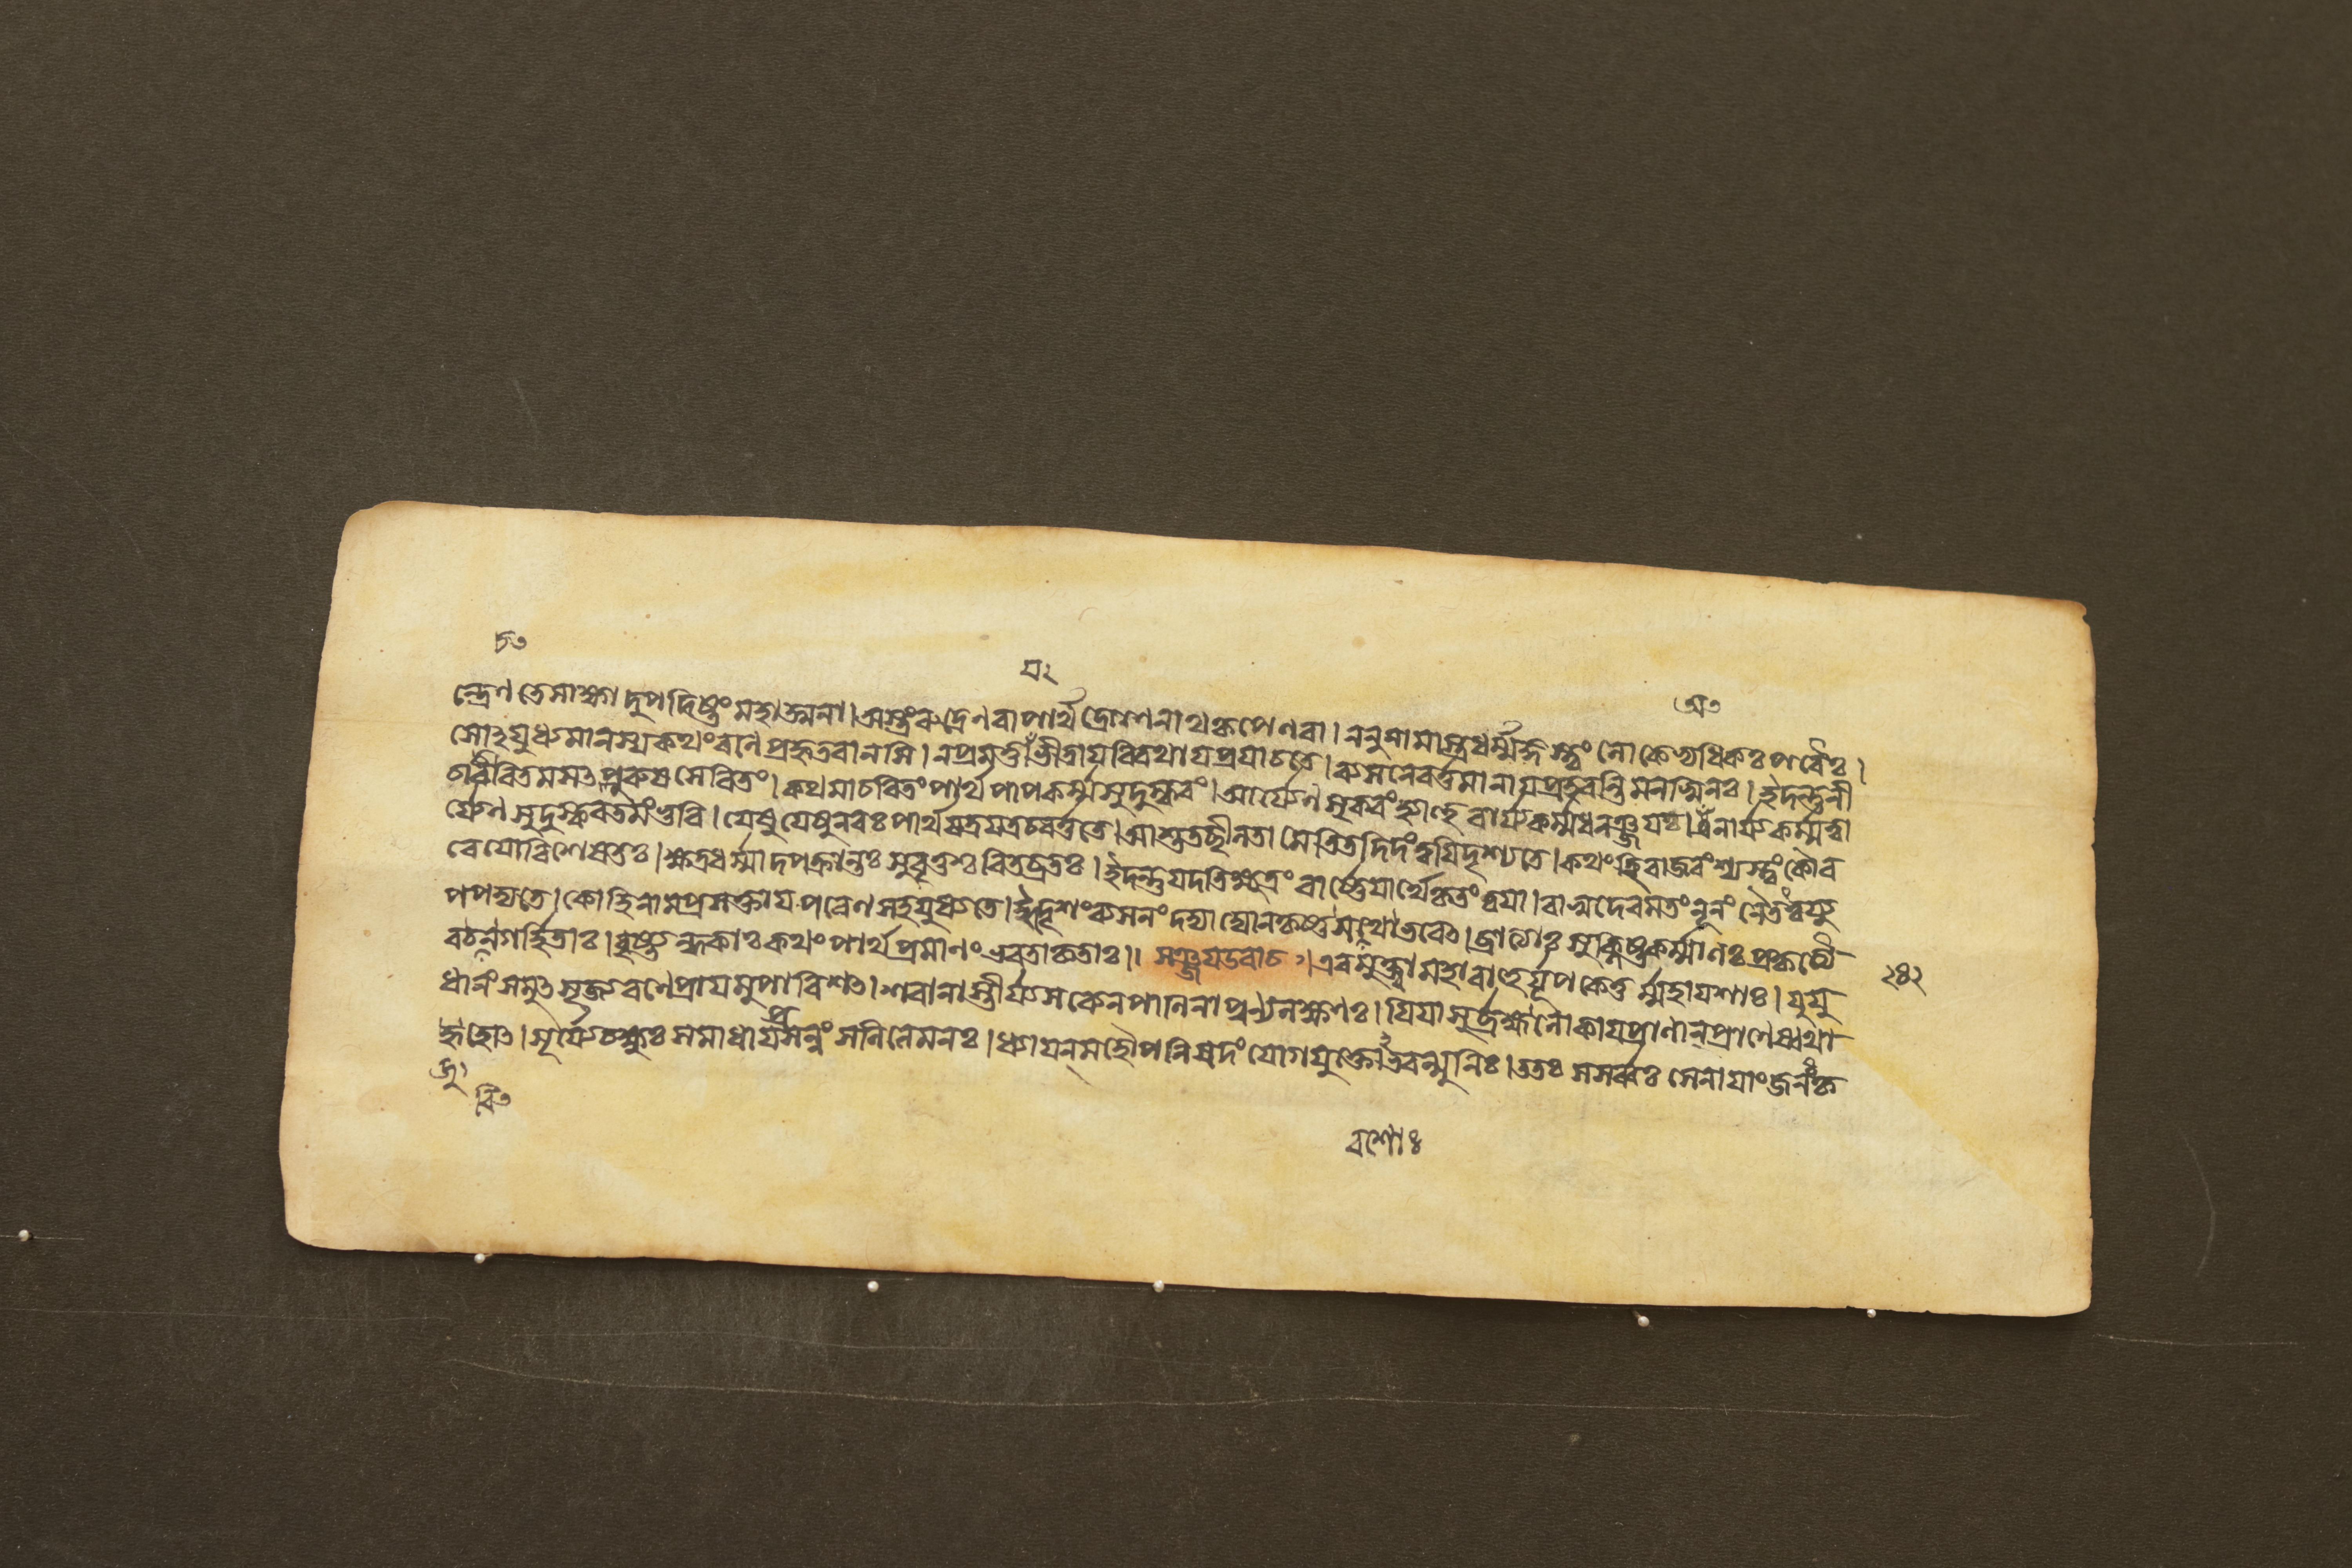 চ৩
য২
অ৩
ন্দ্রেণ তেসাক্ষাদুপদিষ্টং মহাত্মনা। অস্ত্রংরুদ্রেণবাপার্থ দ্রোণেনাথকৃপেণবা। ননুনামাস্ত্রধর্ম্মজ্ঞস্ত্বং লোকেভ্যধিকঃপরৈঃ।
সোঽযুধ্যমানস্যকথংরণেপ্রহৃতবানসি। নপ্রমত্তায়ভীতায়বিরথায়প্রযাচতে। ব্যসনেবর্ত্তমানায়প্রহরন্তিমনস্বিনঃ। ইদন্তুনী
চৈরাচরিতমসৎপুরুষসেবিতং। কথমাচরিতংপার্থ পাপকর্ম্মসুদুষ্করং। আর্য্যেণসুকরংহ্যাহুরার্য্যকর্ম্মধনঞ্জয়। অনার্য্যকর্ম্মত্বা
র্য্যেণসুদুষ্করতমংভুবি। যেষুযেষুনরঃপার্থযত্রযত্রচবর্ত্ততে। আশুতচ্ছীলতামেতিতদিদংত্বয়িদৃশ্যতে। কথংহিরাজবংশ্যস্ত্বংকৌর
বেয়োবিশেষতঃ। ক্ষত্রধর্ম্মাদপক্রান্তঃসুবৃত্তশ্চরিতব্রতঃ। ইদন্তুযদতিক্ষুদ্রংবার্ষ্ণেয়ার্থেকৃতংত্বয়া। বাসুদেবমতংনূনংনৈতত্ত্বয্যু
পপদ্যতে। কোহিনামপ্রমত্তায়পরেণসহযুধ্যতে। ইদৃশংব্যসনংদদ্যাদ্যোনকৃষ্ণসখোভবেৎ। ব্রাত্যাঃসংক্লিষ্টকর্ম্মাণঃপ্রকৃত্যৈ
বচগর্হিতাঃ। বৃষ্ণ্যন্ধকাঃকথংপার্থপ্রমাণংভবতাকৃতাঃ।। সঞ্জয়উবাচ। এবমুক্ত্বামহাবাহুর্যূপকেতুর্ম্মহাযশাঃ। যুযু
ধানংসমুৎসৃজ্যরণেপ্রায়মুপাবিশৎ। শরানাস্তীর্য্যসব্যেনপাণিনাপুণ্যলক্ষণঃ। যিয়াসুর্ব্রহ্মলোকায়প্রাণান্প্রাণেষ্বথা
জুহোৎ। সূর্য্যেচক্ষুঃসমাধায়প্রসন্নংসলিলেমনঃ। ধ্যায়ন্মহোপনিষদংযোগযুক্তোভবন্মুনিঃ। ততঃসসর্ব্বঃসেনায়াংজনঃকৃ
২৪২
জু
বি৩